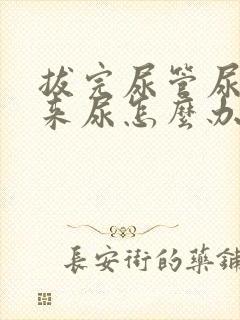 拔完尿管尿
来尿怎麼办
長安街的藥鋪